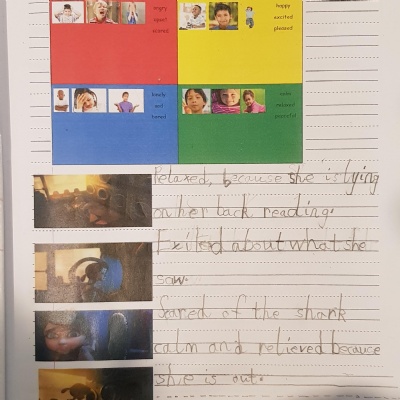 angry
upset
scared
happy
excited
pleased
lonely
sad
bored
calm
relaxed
peaceful
Relaxed, because she is lying
on her back reading.
Exited about what she
saw.
Scared of the shark
calm and relieved because
she is out.